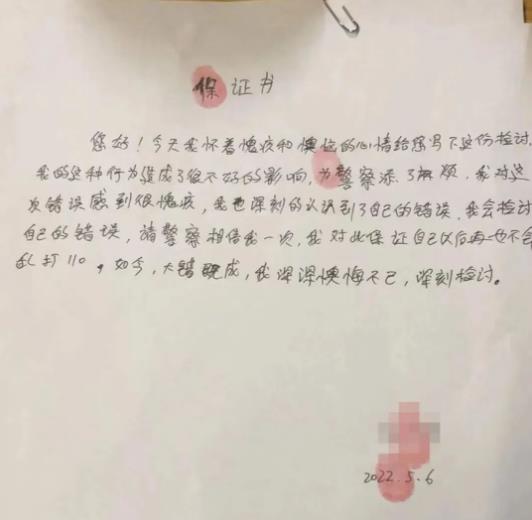 保证书
您好！今天我怀着愧疚和懊悔的心情给您写下这份检讨.
我的这种行为造成了很不好的影响,为警察添了麻烦.我对这
次错误感到很愧疚,我也深刻的认识到了自己的错误.我会检讨
自己的错误,请警察相信我一次,我对此保证自己以后再也不会
乱打110。如今,大错既成,我深深懊悔不已,深刻检讨。
2022.5.6